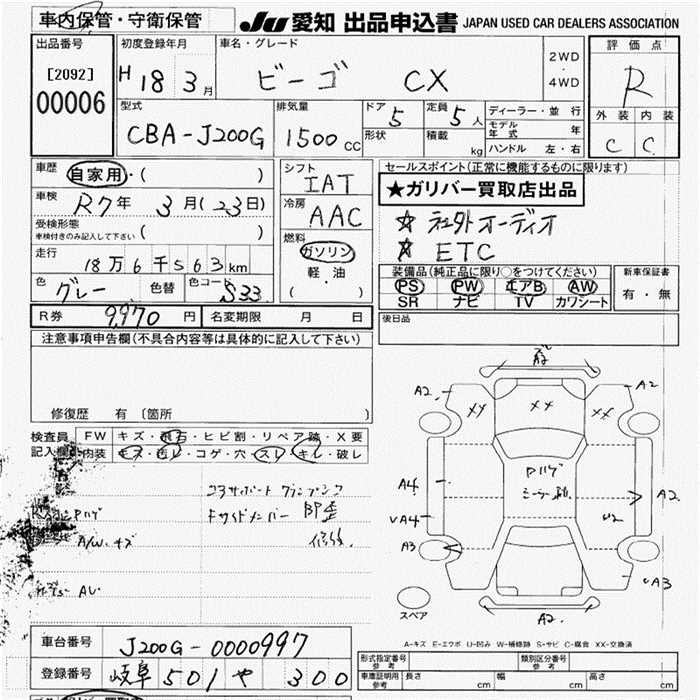 車内保管・守衛保管
JU 愛知 出品申込書 JAPAN USED CAR DEALERS ASSOCIATION
出品番号
[2092]
00006
初度登録年月
H 18 3月
車名・グレード
ビーゴ CX
2WD
・
4WD
評価点
R
外装 内装
C C
型式
CBA-J200G
排気量
1500cc
ドア 5
形状
定員 5人
積載 kg
ディーラー・並行
モデル年式 年
ハンドル 左・右
車歴
自家用・( )
車検
R7年 3月(23日)
受検形態
車検付きのみ記入して下さい ( )
走行
18万6千563km
色 グレー 色替 色コード S33
シフト
IAT
冷房
AAC
燃料
ガソリン
軽・油
( ・ )
セールスポイント(正常に機能するものに限ります)
★ガリバー買取店出品
☆ 社外オーディオ
☆ ETC
装備品(純正品に限り○をつけてください)
PS PW エアB AW
SR ナビ TV カワシート
新車保証書
有・無
R券 9,970円 名変期限 月 日
後日品
注意事項申告欄(不具合内容等は具体的に記入して下さい)
修復歴 有〔箇所 〕
検査員記入欄
FW キズ・飛石・ヒビ割・リペア跡・X要
内装 キズ・汚レ・コゲ・穴・スレ・キレ・破レ
コアサポート クランプ
Pハゲ
Fサイドメンバー 即歪
A/W キズ
修後
A2
A2
XX
XX
XX
A2
Pハゲ
A4
A2
A4
W2
A3
A3
A2
スペア
A-キズ E-エクボ U-凹み W-補修跡 S-サビ C-腐食 XX-交換済
車台番号 J200G-0000997
登録番号 岐阜 501 や 300
形式指定番号
参考
類別区分番号
参考
車庫証明用
参考
長さ cm 幅 cm 高さ cm